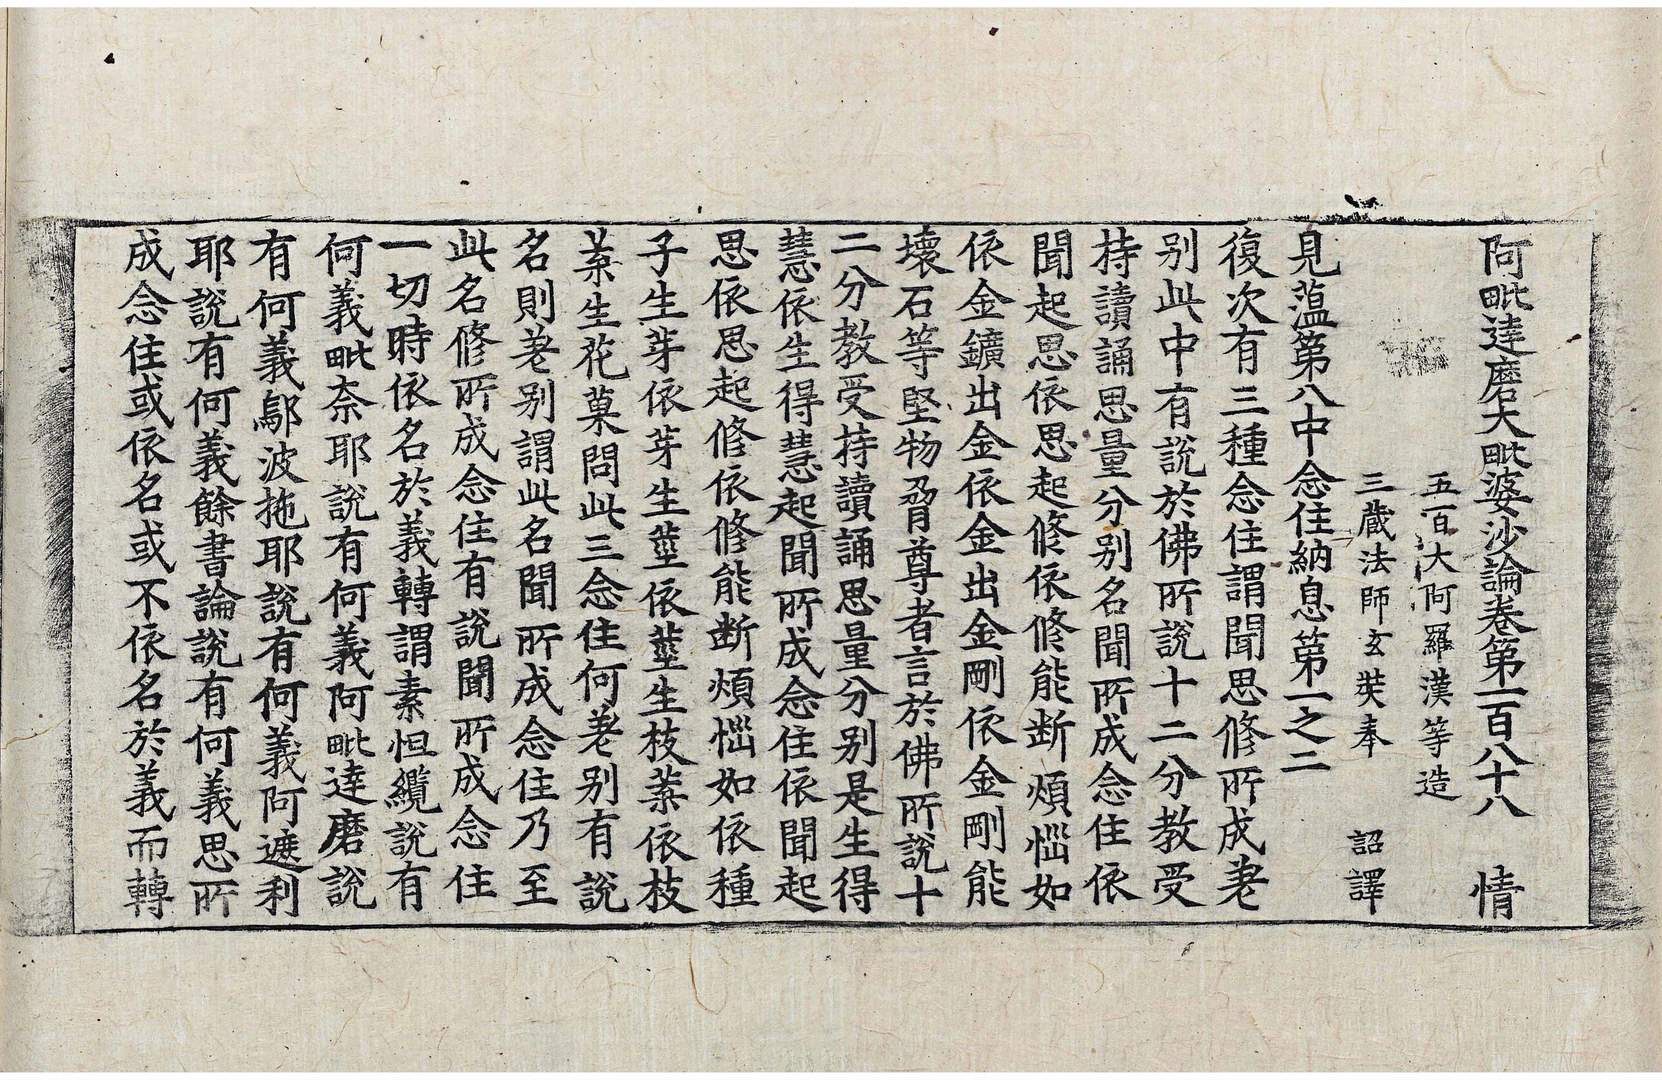 阿毗達磨大毗婆沙論卷第一百八十八 情
五百大阿羅漢等造
三藏法師玄奘奉 詔譯
見薀第八中念住納息第一之二
復次有三種念住謂聞思修所成差
别此中有說於佛所說十二分教受
持讀誦思量分别名聞所成念住依
聞起思依思起修依修能断煩惱如
依金鑛出金依金出金剛依金剛能
壞石等堅物脅尊者言於佛所說十
二分教受持讀誦思量分别是生得
慧依生得慧起聞所成念住依聞起
思依思起修依修能断煩惱如依種
子生芽依芽生莖依莖生枝葉依枝
葉生花菓問此三念住何差别有說
名則差别謂此名聞所成念住乃至
此名修所成念住有說聞所成念住
一切時依名於義轉謂素怛纜說有
何義毗奈耶說有何義阿毗達磨說
有何義鄔波拖耶說有何義阿遮利
耶說有何義餘書論說有何義思所
成念住或依名或不依名於義而轉